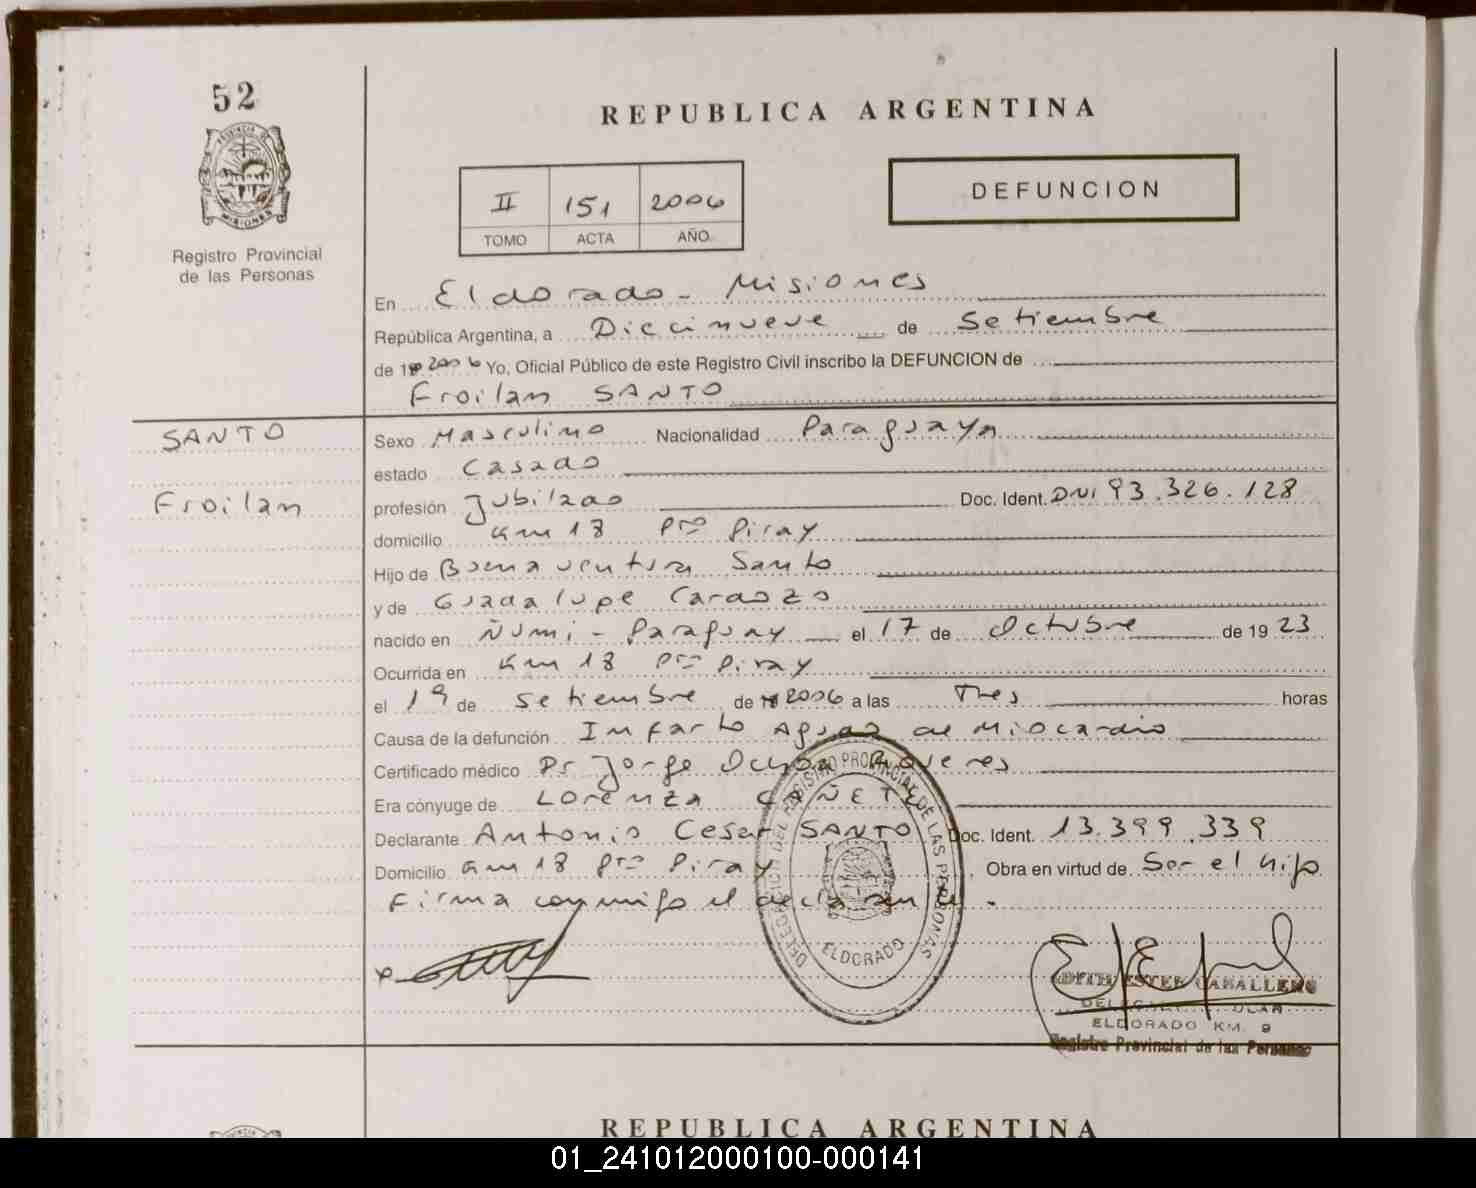 52
PROVINCIA DE
MISIONES
Registro Provincial
de las Personas
REPUBLICA ARGENTINA
II 151 2006
TOMO ACTA AÑO
DEFUNCION
En Eldorado - Misiones
República Argentina, a Diecinueve de Setiembre
de 19 2006 Yo, Oficial Público de este Registro Civil inscribo la DEFUNCION de
Froilan SANTO
SANTO
Froilan
Sexo Masculino Nacionalidad Paraguaya
estado Casado
profesión Jubilado Doc. Ident. DNI 93.326.128
domicilio Km 18 Pto Piray
Hijo de Buenaventura Santo
y de Guadalupe Cardozo
nacido en Ñumi - Paraguay el 17 de Octubre de 19 23
Ocurrida en Km 18 Pto Piray
el 19 de Setiembre de 19 2006 a las Tres horas
Causa de la defunción Infarto Agudo de Miocardio
Certificado médico Dr Jorge
Era cónyuge de LORENZA CAÑETE
Declarante Antonio Cesar SANTO Doc. Ident. 13.399.339
Domicilio Km 18 Pto Piray Obra en virtud de Ser el hijo
Firma conmigo el declarante.
DELEGACION DEL REGISTRO PROVINCIAL DE LAS PERSONAS
ELDORADO
EDITH ESTER CABALLERO
ELDORADO KM. 9
Registro Provincial de las Personas
REPUBLICA ARGENTINA
01_241012000100-000141